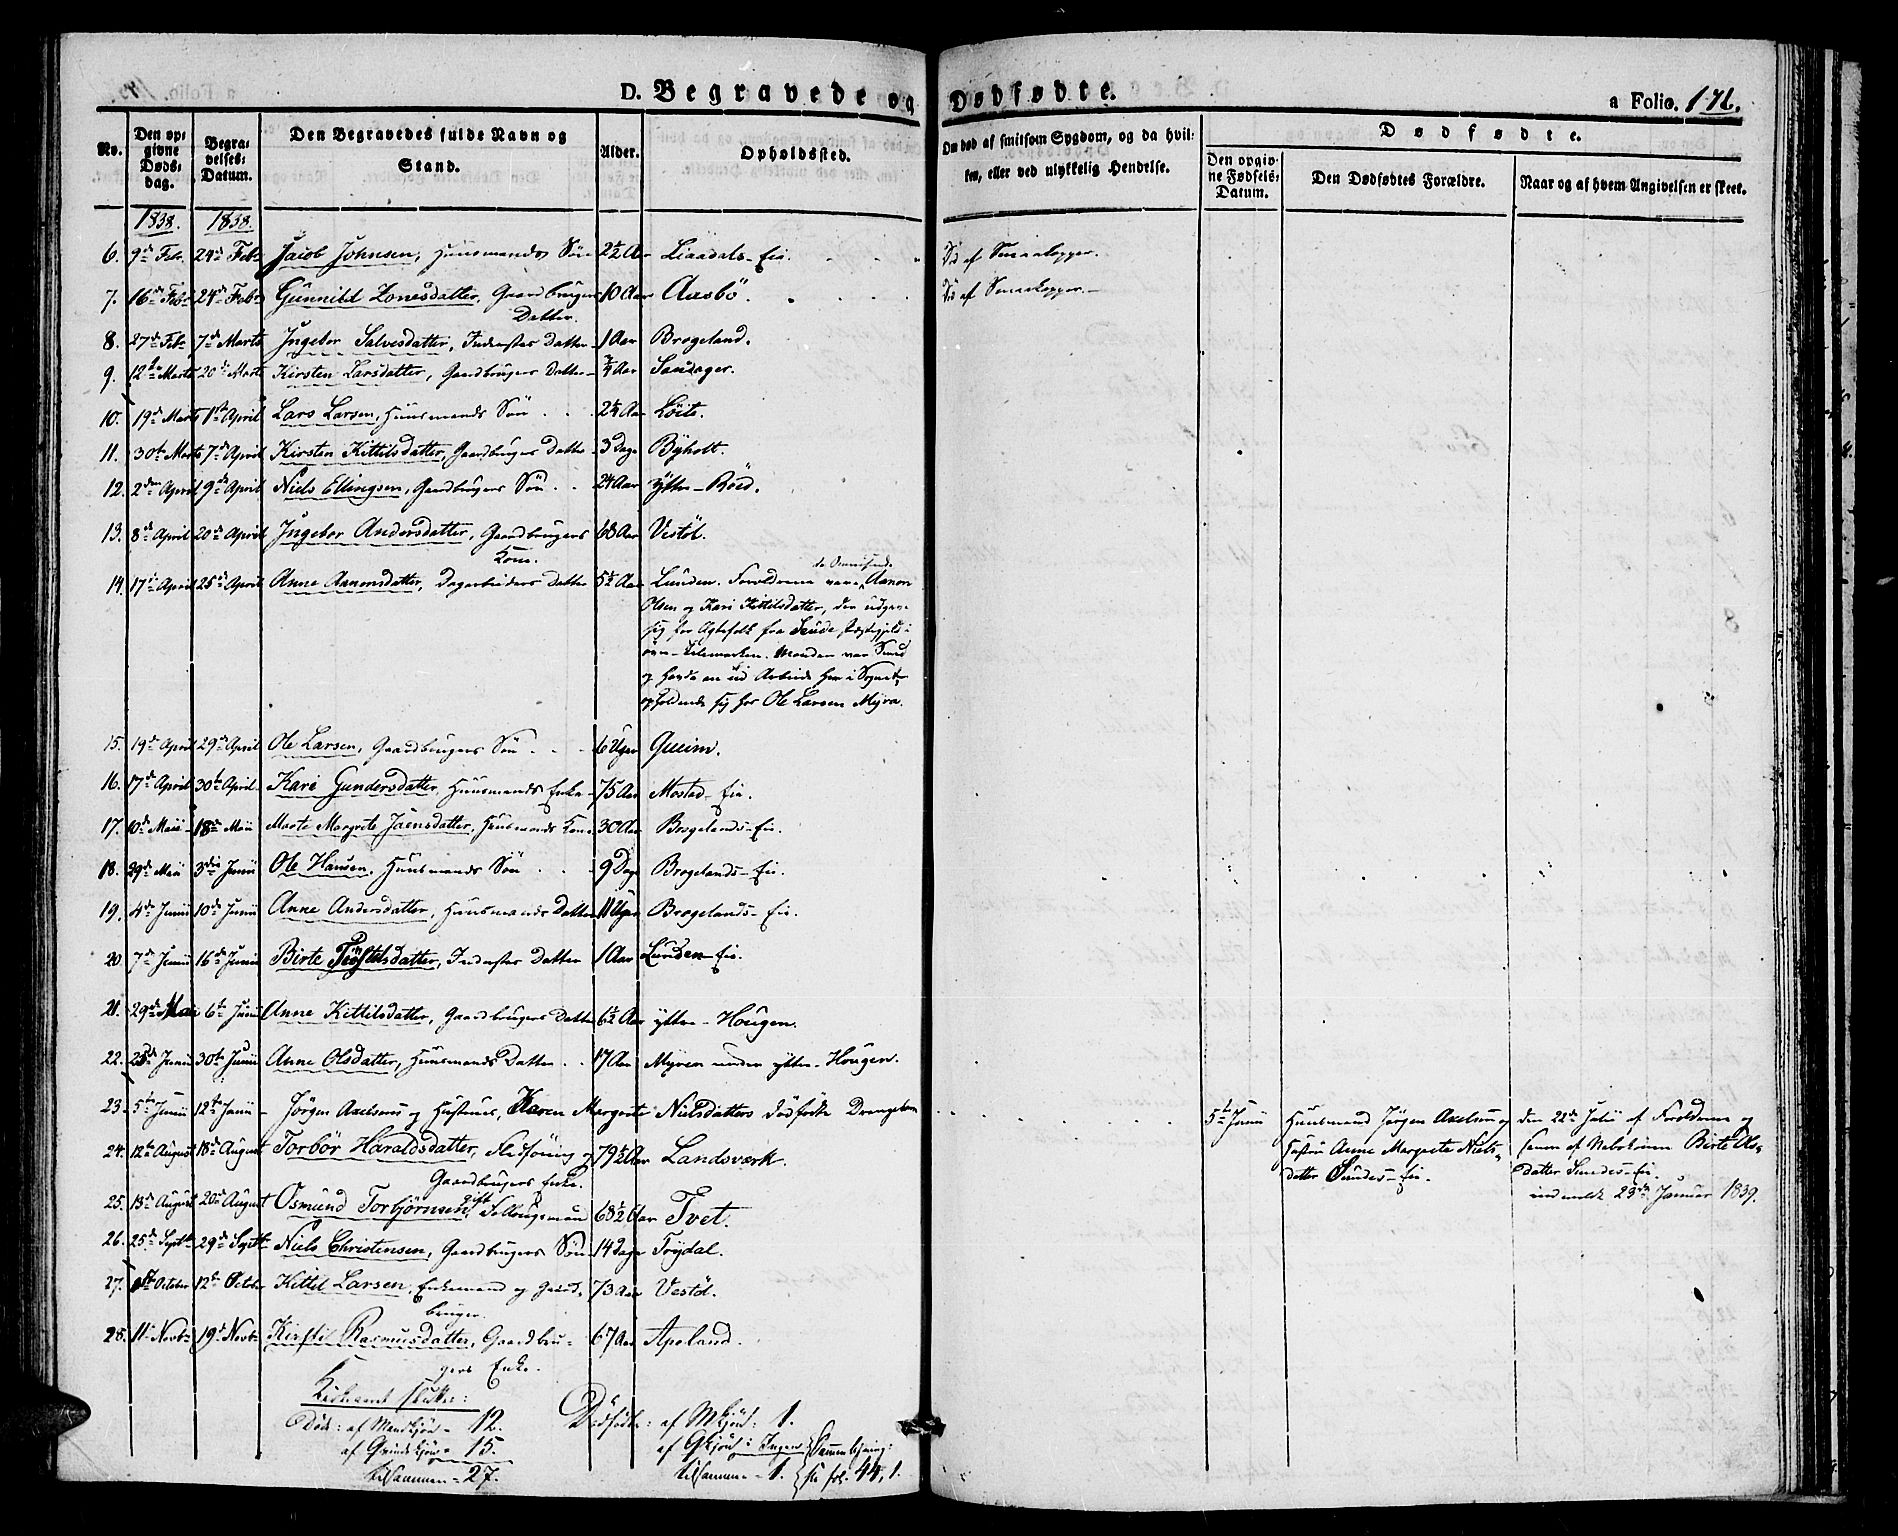 D. Begravede og Dødfødte.
a Folio. 176.
No.
Den op-
givne
Døds-
dag.
Begra-
velses-
Datum.
Den Begravedes fulde Navn og
Stand.
Alder.
Opholdssted.
Om død af smitsom Sygdom, og da hvil-
ken, eller ved ulykkelig Hendelse.
Dødfødte.
Den opgiv-
ne Fødsels-
Datum.
Den Dødfødtes Forældre.
Naar og af hvem Angivelsen er skeet.
1838. 1838.
6. 9de Feb. 24de Feb. Jacob Johnsen, Huusmands Søn 2½ Aar Liaadals-Eie. Død af Smaakopper.
7. 16de Feb. 24de Feb. Gunnild Jonesdatter, Gaardbrugers 10 Aar Ausbö. Død af Smaakopper.
Datter.
8. 27de Feb. 7de Marts Ingebor Salvesdatter, Inderstes Datter 1 Aar Brogeland.
9. 12te Marts 20de Marts Kirsten Larsdatter, Gaardbrugers Datter ¾ Aar Sandager.
10. 19de Marts 1ste April Lars Larsen, Huusmands Søn 2¼ Aar Löite.
11. 30te Marts 7de April Kirsten Kittilsdatter, Gaardbrugers Datter 3 Dage Byholt.
12. 2den April 9de April Niels Ellingsen, Gaardbrugers Søn 24 Aar Yttre-Röed.
13. 8de April 20de April Ingebor Andersdatter, Gaardbrugers 68 Aar Vestöl.
Kone.
14. 17de April 25de April Anne Aanonsdatter, Dagarbeiders Datter 5½ Aar Lunden. Forældrene vare Aanon
Olsen og Kari Kittilsdatter, der udgave
sig for Ægtefolk fra Præstegjeld i
Øvre-Tellemarken. Manden var Smed
og havde en tid Arbeide her i Sognet
opholdende sig hos Ole Larsen Myra.
15. 19de April 29de April Ole Larsen, Gaardbrugers Søn 6 Uger Queim.
16. 17de April 30te April Kari Gundersdatter, Huusmands Enke 75 Aar Mostad-Eie.
17. 10de Maii 18de Maii Marte Margrete Jaensdatter, Huusmands Kone 30 Aar Brogelands-Eie.
18. 29de Maii 3die Junii Ole Hansen, Huusmands Søn 9 Dage Brogelands-Eie.
19. 4de Junii 10de Junii Anne Andersdatter, Huusmands Datter 11 Uger Brogelands-Eie.
20 7de Junii 16de Junii Birte datter, Inderstes Datter 1 Aar Lunden-Eie.
21. 29de Mai 6te Junii Anne Kittilsdatter, Gaardbrugers Datter 6½ Aar Yttre-Hougen.
22. Junii 30te Junii Anne Olsdatter, Huusmands Datter 17 Aar Myren under Yttre-Hougen.
23. 5te Junii 12te Junii Jörgen Axelsens og Hustrues, Karen Margrete Nielsdatters dødfødte Drengebarn 5te Junii Huusmand Jörgen Axelsen og den 22de Julii af Forældrene og
Hustru Anne Margrete Niels- senere af Nabokonen Birte Ols-
datter Sundes-Eie. datter Sundes-Eie.
indmeldt 23de Januar 1839.
24. 12te August 18de August Torbör Haraldsdatter, og 79½ Aar Landsværk.
Gaardbrugers Enke.
25. 13de August 20de August Osmund Torbjörnsen, gift 68½ Aar Tvet.
26. 25de Septb. 29de Septb. Niels Christensen, Gaardbrugers Søn 14 Dage Tröydal.
27. October 12te Octobr. Kittil Larsen, Enkemand og Gaard- 73 Aar Vestöl.
bruger.
28. 11te Novbr. 19de Novbr. Kirsti Rasmusdatter, Gaardbru- 67 Aar Apeland.
gers Enke.
Kirkeaaret sluttes:
Døde: af Mandkjön - 12. Dødfødte: af Mkjön: 1.
af Qvindekjön - 15. af Qkjön: Ingen Sammenligning:
tilsammen - 27. tilsammen - 1. see fol. 44, 1.